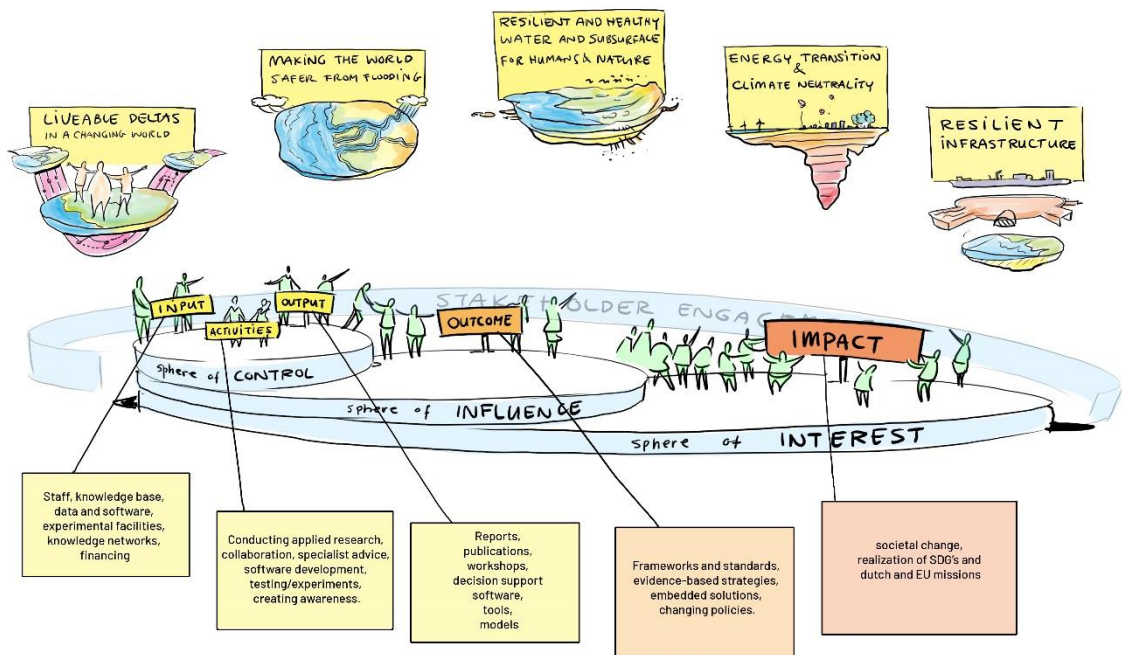 LIVEABLE DELTAS
IN A CHANGING WORLD
MAKING THE WORLD
SAFER FROM FLOODING
RESILIENT AND HEALTHY
WATER AND SUBSURFACE
FOR HUMANS & NATURE
ENERGY TRANSITION
&
CLIMATE NEUTRALITY
RESILIENT
INFRASTRUCTURE
STAKEHOLDER ENGAGE
INPUT
ACTIVITIES
OUTPUT
OUTCOME
IMPACT
sphere of CONTROL
sphere of INFLUENCE
sphere of INTEREST
Staff, knowledge base,
data and software,
experimental facilities,
knowledge networks,
financing
Conducting applied research,
collaboration, specialist advice,
software development,
testing/experiments,
creating awareness.
Reports,
publications,
workshops,
decision support
software,
tools,
models
Frameworks and standards,
evidence-based strategies,
embedded solutions,
changing policies.
societal change,
realization of SDG's and
dutch and EU missions